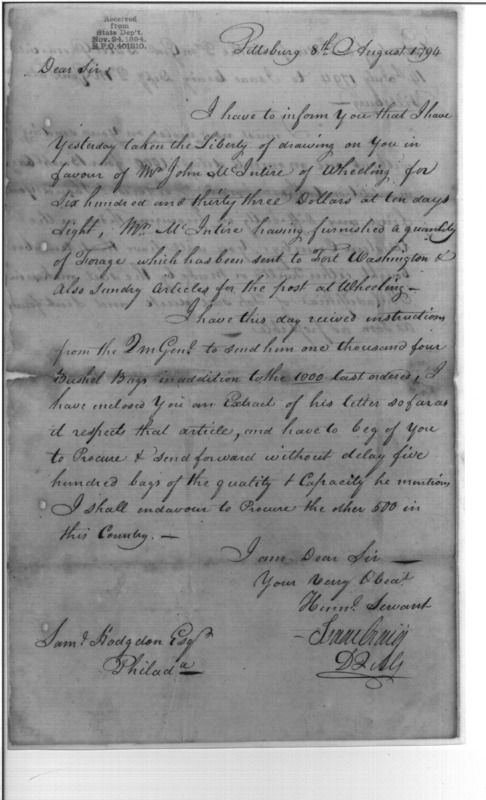 Received
from
State Dep't.
Nov. 24. 1894.
R.P.O. 401810.
Pittsburg 8th August 1794
Dear Sir
I have to inform You that I have
Yesterday taken the Liberty of drawing on You in
favour of Mr John McIntire of Wheeling for
Six hundred and thirty three Dollars at ten days
Sight, Mr. McIntire having furnished a quantity
of Forage which has been sent to Fort Washington &
Also Sundry Articles for the post at Wheeling —
I have this day recived instructions
from the Qm Genl. to send him one thousand four
Bushel Bags in addition to the 1000 last ordered, I
have enclosed You an Extract of his letter so far as
it respects that article, and have to beg of You
to Procure & Send forward without delay five
hundred bags of the quality & Capacity he mentions
I shall endavour to Procure the other 500 in
this Country. —
I am Dear Sir —
Your very Obedt
Humbl. Servant
Isaac Craig
DQMG
Saml Hodgdon Esqr
Philada